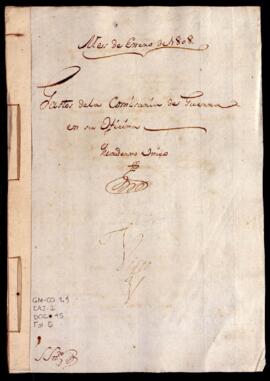 Mes de Enero de 1808.
Gastos de la Comisaría de Guerra
en su Oficina
Quaderno unico
GM-CO 11
CAJ-2
DOC 45